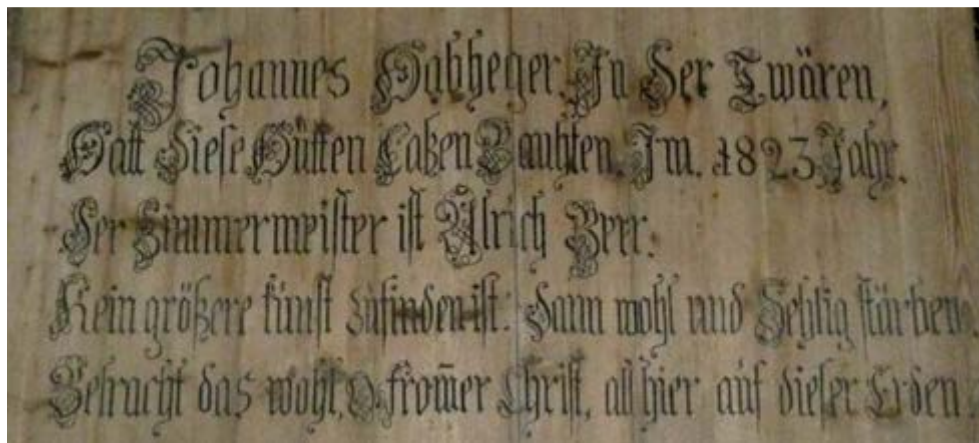 Johannes Habheger. In Der Twären,
Hatt Diese Hütten Laßen Bauhten. Im. 1823 Jahr.
Der Zimmermeister ist Ulrich Beer.
Kein größere kunst zufinden ist: Dann wohl und Sehlig stärben
Betracht das wohl, O from̄er Christ, all hier auf dieser Erden